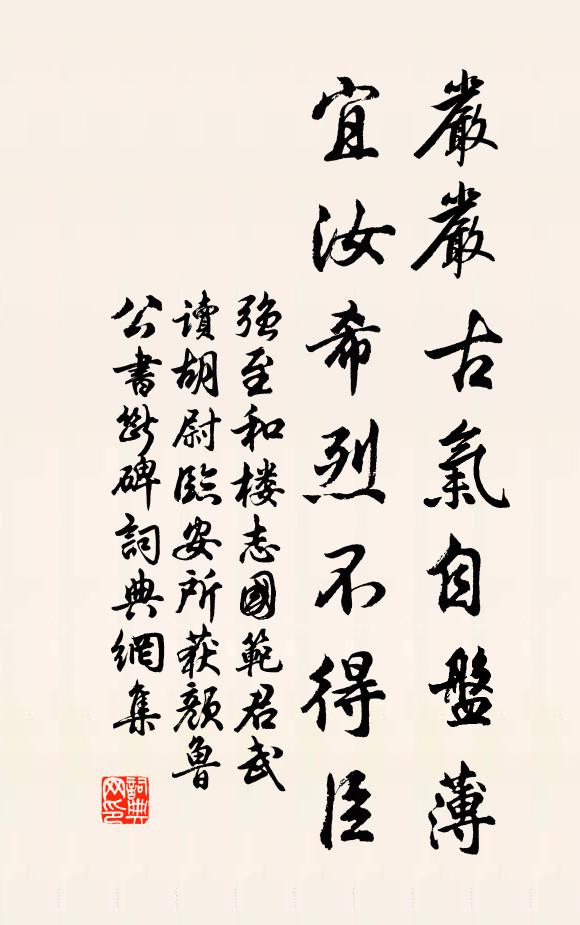 嚴嚴古氣自盤薄
宜汝希烈不得臣
強至和楼志國範君武
讀胡尉臨安所获顏魯
公書斷碑詞典網集
詞典网印